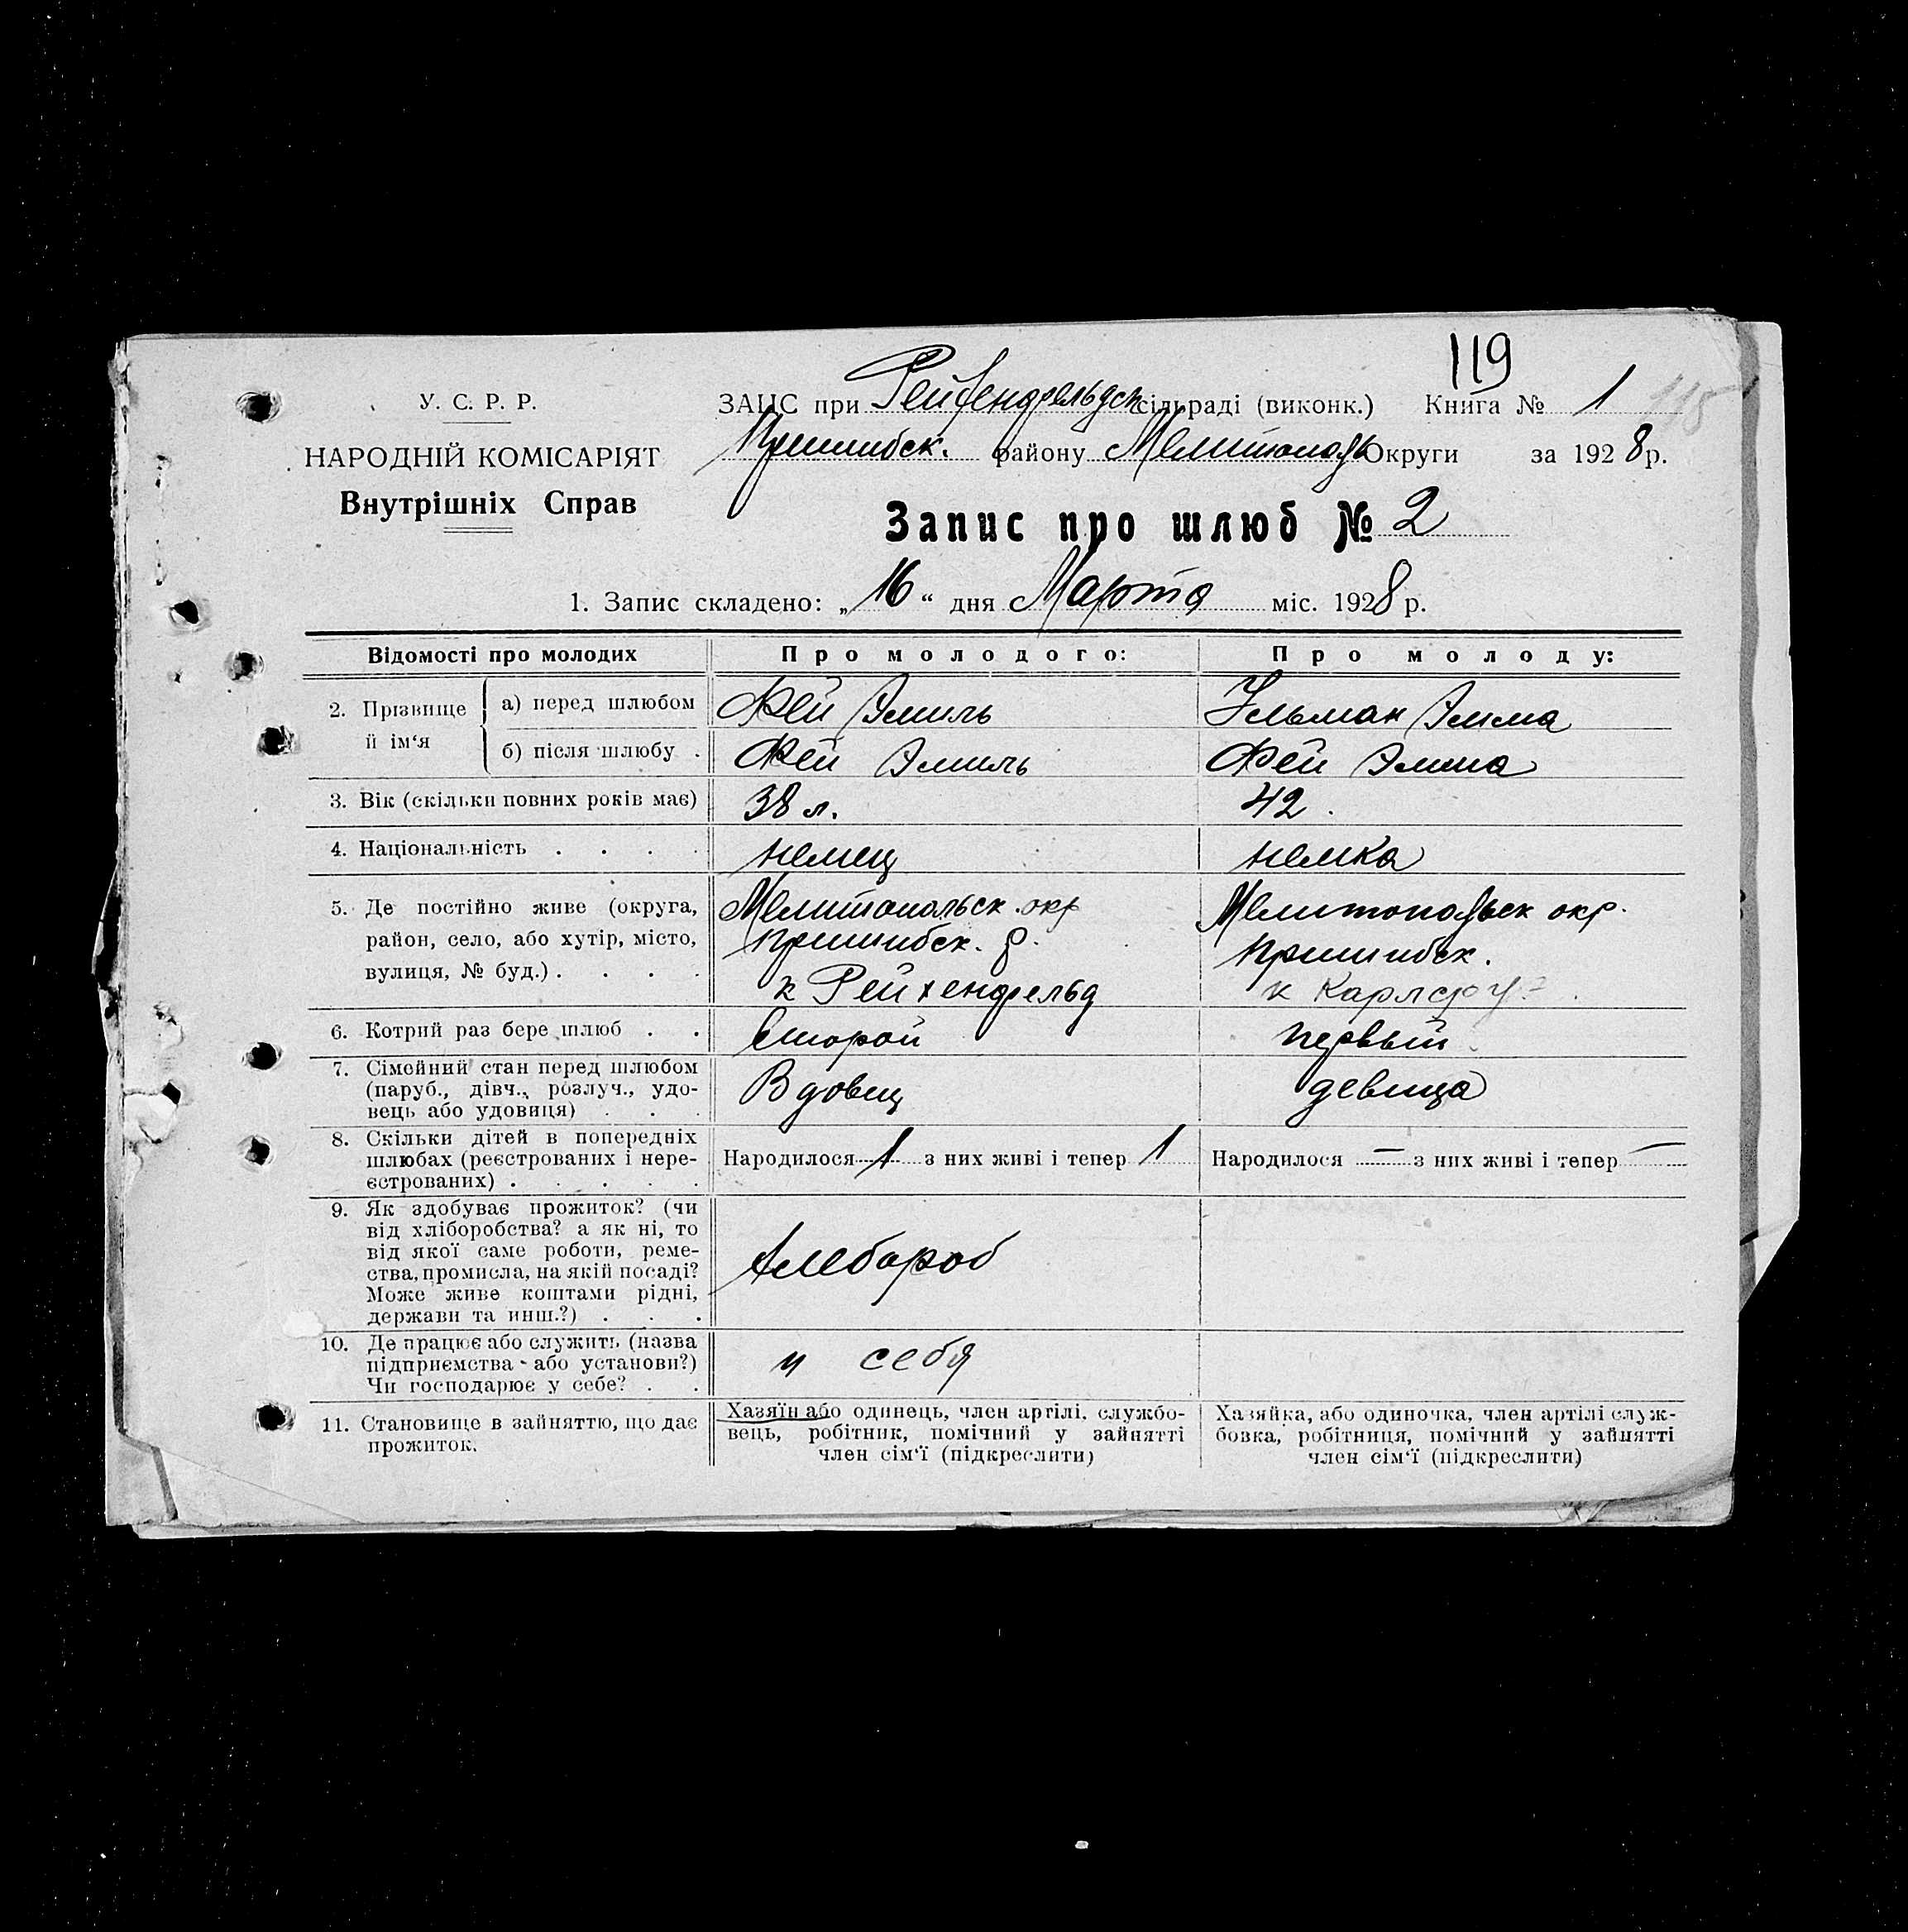 119
У. С. Р. Р.
НАРОДНІЙ КОМІСАРІЯТ
Внутрішніх Справ
ЗАПС при Рейхенфельдск сільраді (виконк.) Книга № 1 115
Пришибск. району Мелитополь Округи за 1928 р.
Запис про шлюб № 2
1. Запис складено: „16“ дня Марта міс. 1928 р.
Відомості про молодих Про молодого: Про молоду:
2. Прізвище й ім‘я
а) перед шлюбом Фей Эмиль Ульман Эмма
б) після шлюбу . Фей Эмиль Фей Эмма
3. Вік (скільки повних років має) 38 л. 42 .
4. Національність . . . . немец немка
5. Де постійно живе (округа, район, село, або хутір, місто, вулиця, № буд.) . . . .
Мелитопольск. окр
Пришибск. р.
к Рейхенфельд
Мелитопольск окр.
Пришибск.
к Карлсру
6. Котрий раз бере шлюб . . второй первый
7. Сімейний стан перед шлюбом
(паруб., дівч., розлуч., удо-
вець або удовиця) . . . Вдовец девица
8. Скільки дітей в попередніх
шлюбах (реєстрованих і нере-
єстрованих) . . . . .
Народилося 1 з них живі і тепер 1
Народилося — з них живі і тепер —
9. Як здобуває прожиток? (чи
від хліборобства? а як ні, то
від якої саме роботи, реме-
ства, промисла, на якій посаді?
Може живе коштами рідні,
держави та инш.?) . . .
Хлебороб
10. Де працює або служить (назва
підприємства або установи?)
Чи господарює у себе? . .
у себя
11. Становище в зайняттю, що дає
прожиток.
Хазяїн або одинець, член артілі, службо-
вець, робітник, помічний у зайнятті
член сім‘ї (підкреслити)
Хазяйка, або одиночка, член артілі служ-
бовка, робітниця, помічний у зайнятті
член сім‘ї (підкреслити)